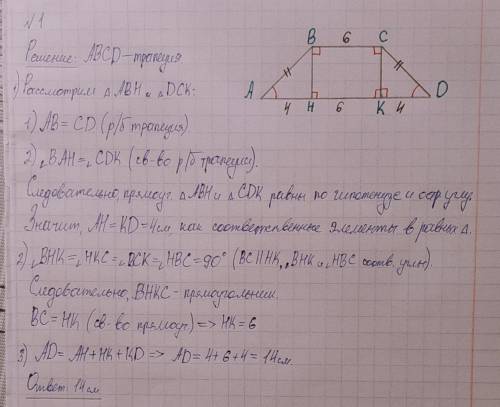 №1
Решение: ABCD – трапеция.
1) Рассмотрим △ABH и △DCK:
1) AB = CD (р/б трапеция)
2) ∠BAH = ∠CDK (св-во р/б трапеции).
Следовательно, прямоуг. △ABH и △CDK равны по гипотенузе и остр. углу.
Значит, AH = KD = 4 см, как соответственные элементы в равных △.
2) ∠BHK = ∠HKC = ∠BCK = ∠HBC = 90° (BC || HK, ∠BHK и ∠HBC соотв. углы).
Следовательно, BHKC – прямоугольник.
BC = HK (св-во прямоуг.) => HK = 6
3) AD = AH + HK + KD => AD = 4 + 6 + 4 = 14 см.
Ответ: 14 см
B 6 C
A 4 H 6 K 4 D